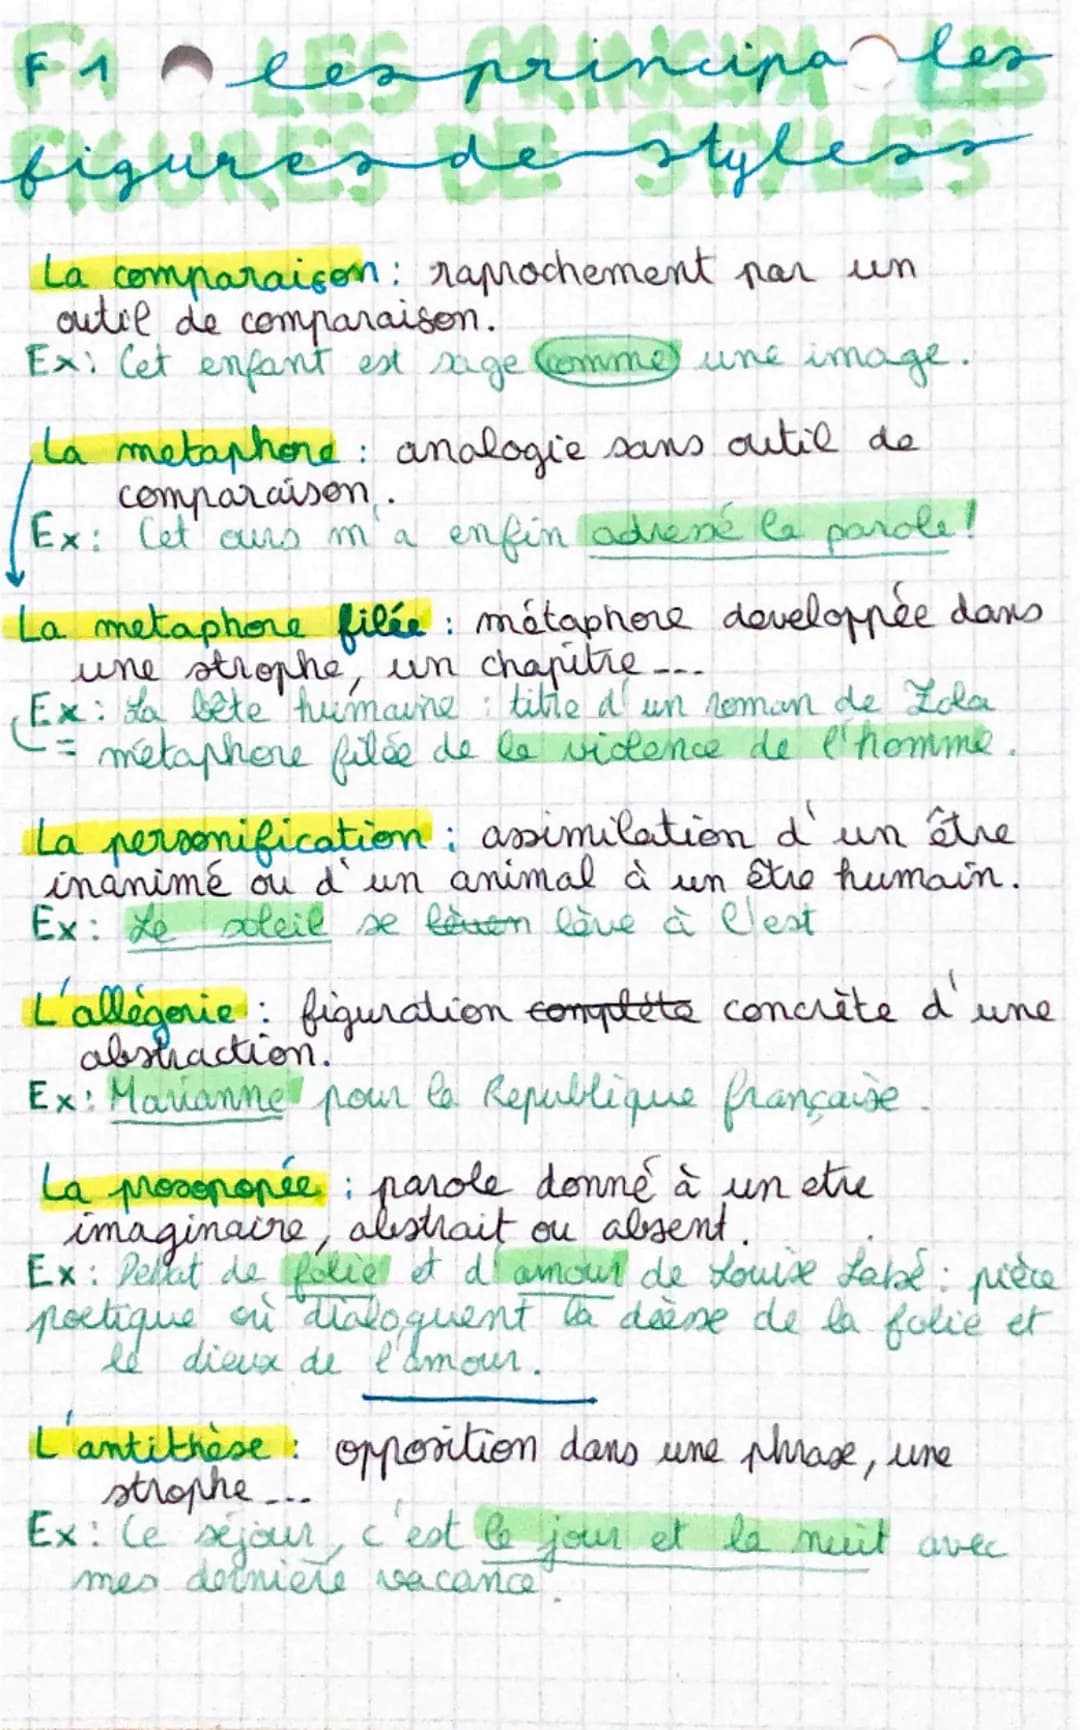 F1 les principales
LES PRINCIPALES
figures de styles
FIGURES DE STYLES
La comparaison : raprochement par un
outil de comparaison.
Ex : Cet enfant est sage comme une image.
La metaphore : analogie sans outil de
comparaison.
Ex : Cet ours m'a enfin adressé la parole !
La metaphore filée : métaphore developpée dans
une strophe, un chapitre ...
Ex : La bête humaine : titre d'un roman de Zola
= métaphore filée de la violence de l'homme.
La personification : assimilation d'un être
inanimé ou d'un animal à un être humain.
Ex : Le soleil se lève à l'est
L'allégorie : figuration complète concrète d'une
abstraction.
Ex : Marianne pour la Republique française.
La prosopopée : parole donné à un etre
imaginaire, abstrait ou absent.
Ex : Debat de folie et d'amour de Louise Labé : pièce
poetique où dialoguent la déesse de la folie et
le dieux de l'amour.
L'antithèse : opposition dans une phrase, une
strophe ...
Ex : Ce séjour, c'est le jour et la nuit avec
mes dernière vacance.